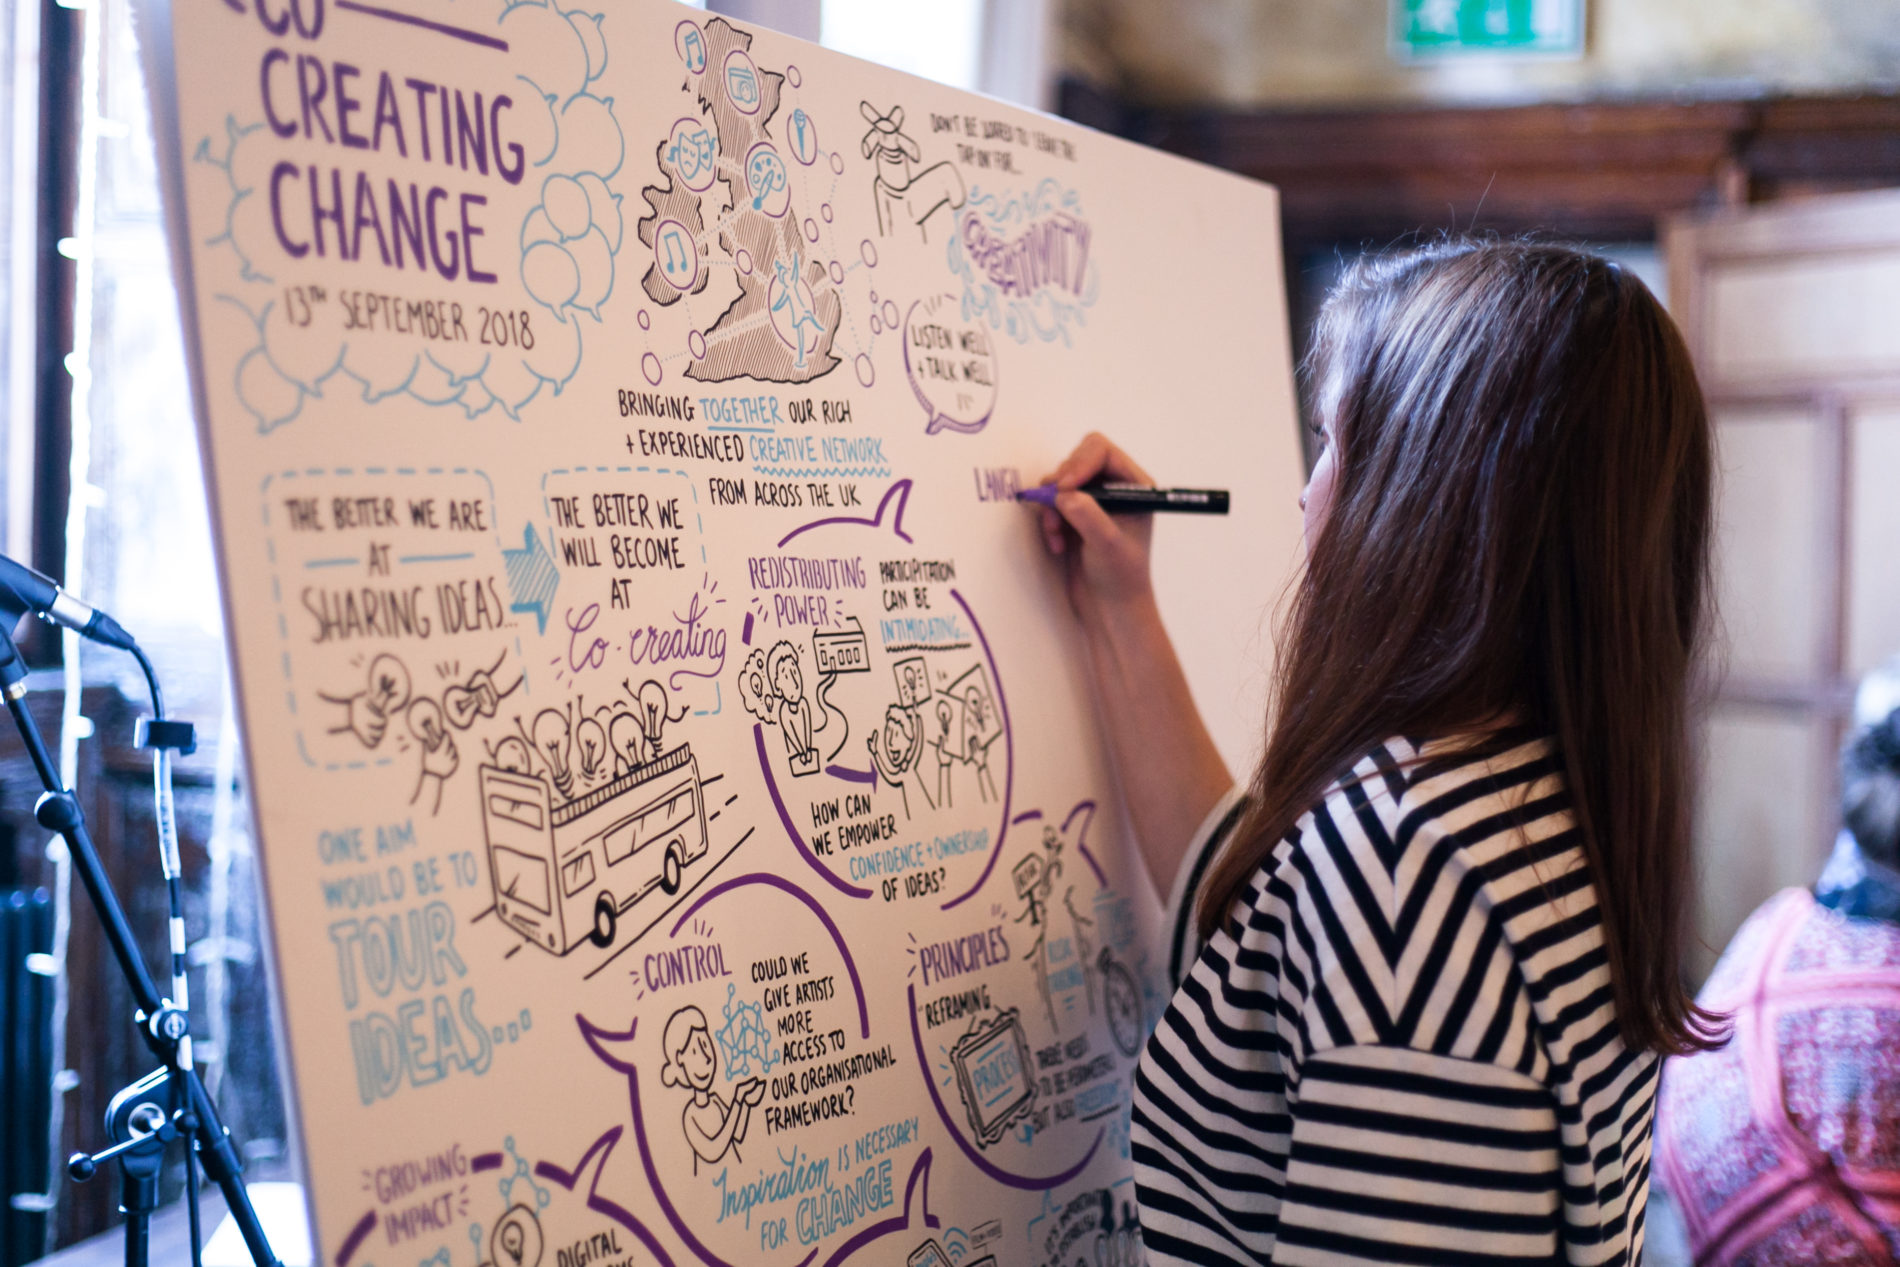 CO
CREATING
CHANGE
13TH SEPTEMBER 2018
BRINGING TOGETHER OUR RICH
+ EXPERIENCED CREATIVE NETWORK
FROM ACROSS THE UK
DON'T BE SCARED TO
TAP ON FOR...
CREATIVITY
LISTEN WELL
+ TALK WELL
LANGU
THE BETTER WE ARE
AT
SHARING IDEAS...
THE BETTER WE
WILL BECOME
AT
Co-creating
ONE AIM
WOULD BE TO
TOUR
IDEAS...
REDISTRIBUTING
POWER
PARTICIPATION
CAN BE
INTIMIDATING...
HOW CAN
WE EMPOWER
CONFIDENCE + OWNERSHIP
OF IDEAS?
CONTROL
COULD WE
GIVE ARTISTS
MORE
ACCESS TO
OUR ORGANISATIONAL
FRAMEWORK?
Inspiration IS NECESSARY
FOR CHANGE
PRINCIPLES
REFRAMING
PROCESS
BUT ALSO
GROWING
IMPACT
DIGITAL